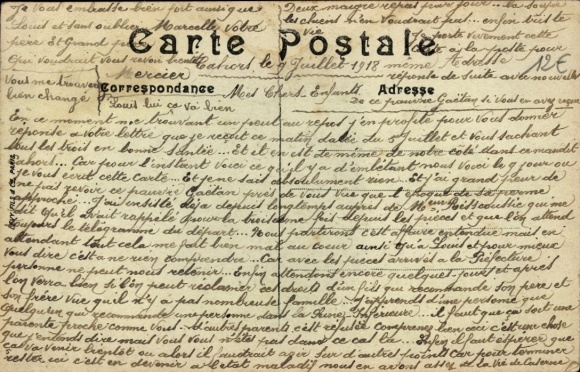 Je vous embrasse bien fort ainsi que
Louis et sans oublier Marcelle Votre
père et Grand
Qui voudrait vous revoir bientôt
Mercier
Vous me trouverez
bien changé
Louis lui ça va bien
Deux maigre repas par jour la soupe
les chiens n'en voudrait pas enfin triste
Vie
Je porte vivement cette
Carte à la poste pour
même Adresse
réponse de suite avec nouvelles
De ce pauvre Gaëtan si Vous en avez reçue
12€
Carte Postale
Cahors le 9 Juillet 1918
Correspondance
Adresse
Mes Chers Enfants
En ce moment me trouvant un peut au repos j'en profite pour Vous donner
réponse a Votre lettre que je reçoit ce matin datée du 5 Juillet et Vous sachant
tous les trois en bonne santée Et il en est de même de notre côté dans ce maudit
Cahors Car pour l'instant Voici ce qu'il y a d'éclatant nous Voici le 9 jour ou
je Vous écrit cette Carte Et je ne sais absolument rien Et j'ai grand peur de
ne pas revoir ce pauvre Gaëtan près de Vous Vue que l'époque de sa perme
approche J'ai insisté déja depuis longtemps auprès de
dit qu'il avait rappelé pour la troisième fois depuis les pièces et que l'on attend
toujours le télégramme du départ Nous partirons c'est affaire entendue mais en
attendant tout cela me fait bien mal au coeur ainsi qu'a Louis et pour mieux
Vous dire c'est a ne rien comprendre Car avec les pièces arrivés a la Préfecture
personne ne peut nous retenir Enfin attendons encore quelques jours et après
l'on Verra bien si l'on peut réclamer ces droits d'un fils qui recommande son père et
son frère Vue qu'il n'y à pas nombreuse famille J'apprends d'une personne que
quelqu'un qui recommande une personne dans la Seine Inférieure il faut que ça soit une
parente proche comme Vous D'autres parents c'est refusé Comprenez bien ceci c'est une chose
que j'entends dire mais Vous Vous n'êtes pas dans ce cas la Enfin il faut espérer que
ça Va Venir bientôt ou alors il faudrait agir sur d'autre points Car pour terminer
rester ici c'est en devenir a l'état maladif nous en avons assez de la Vie de Caserne